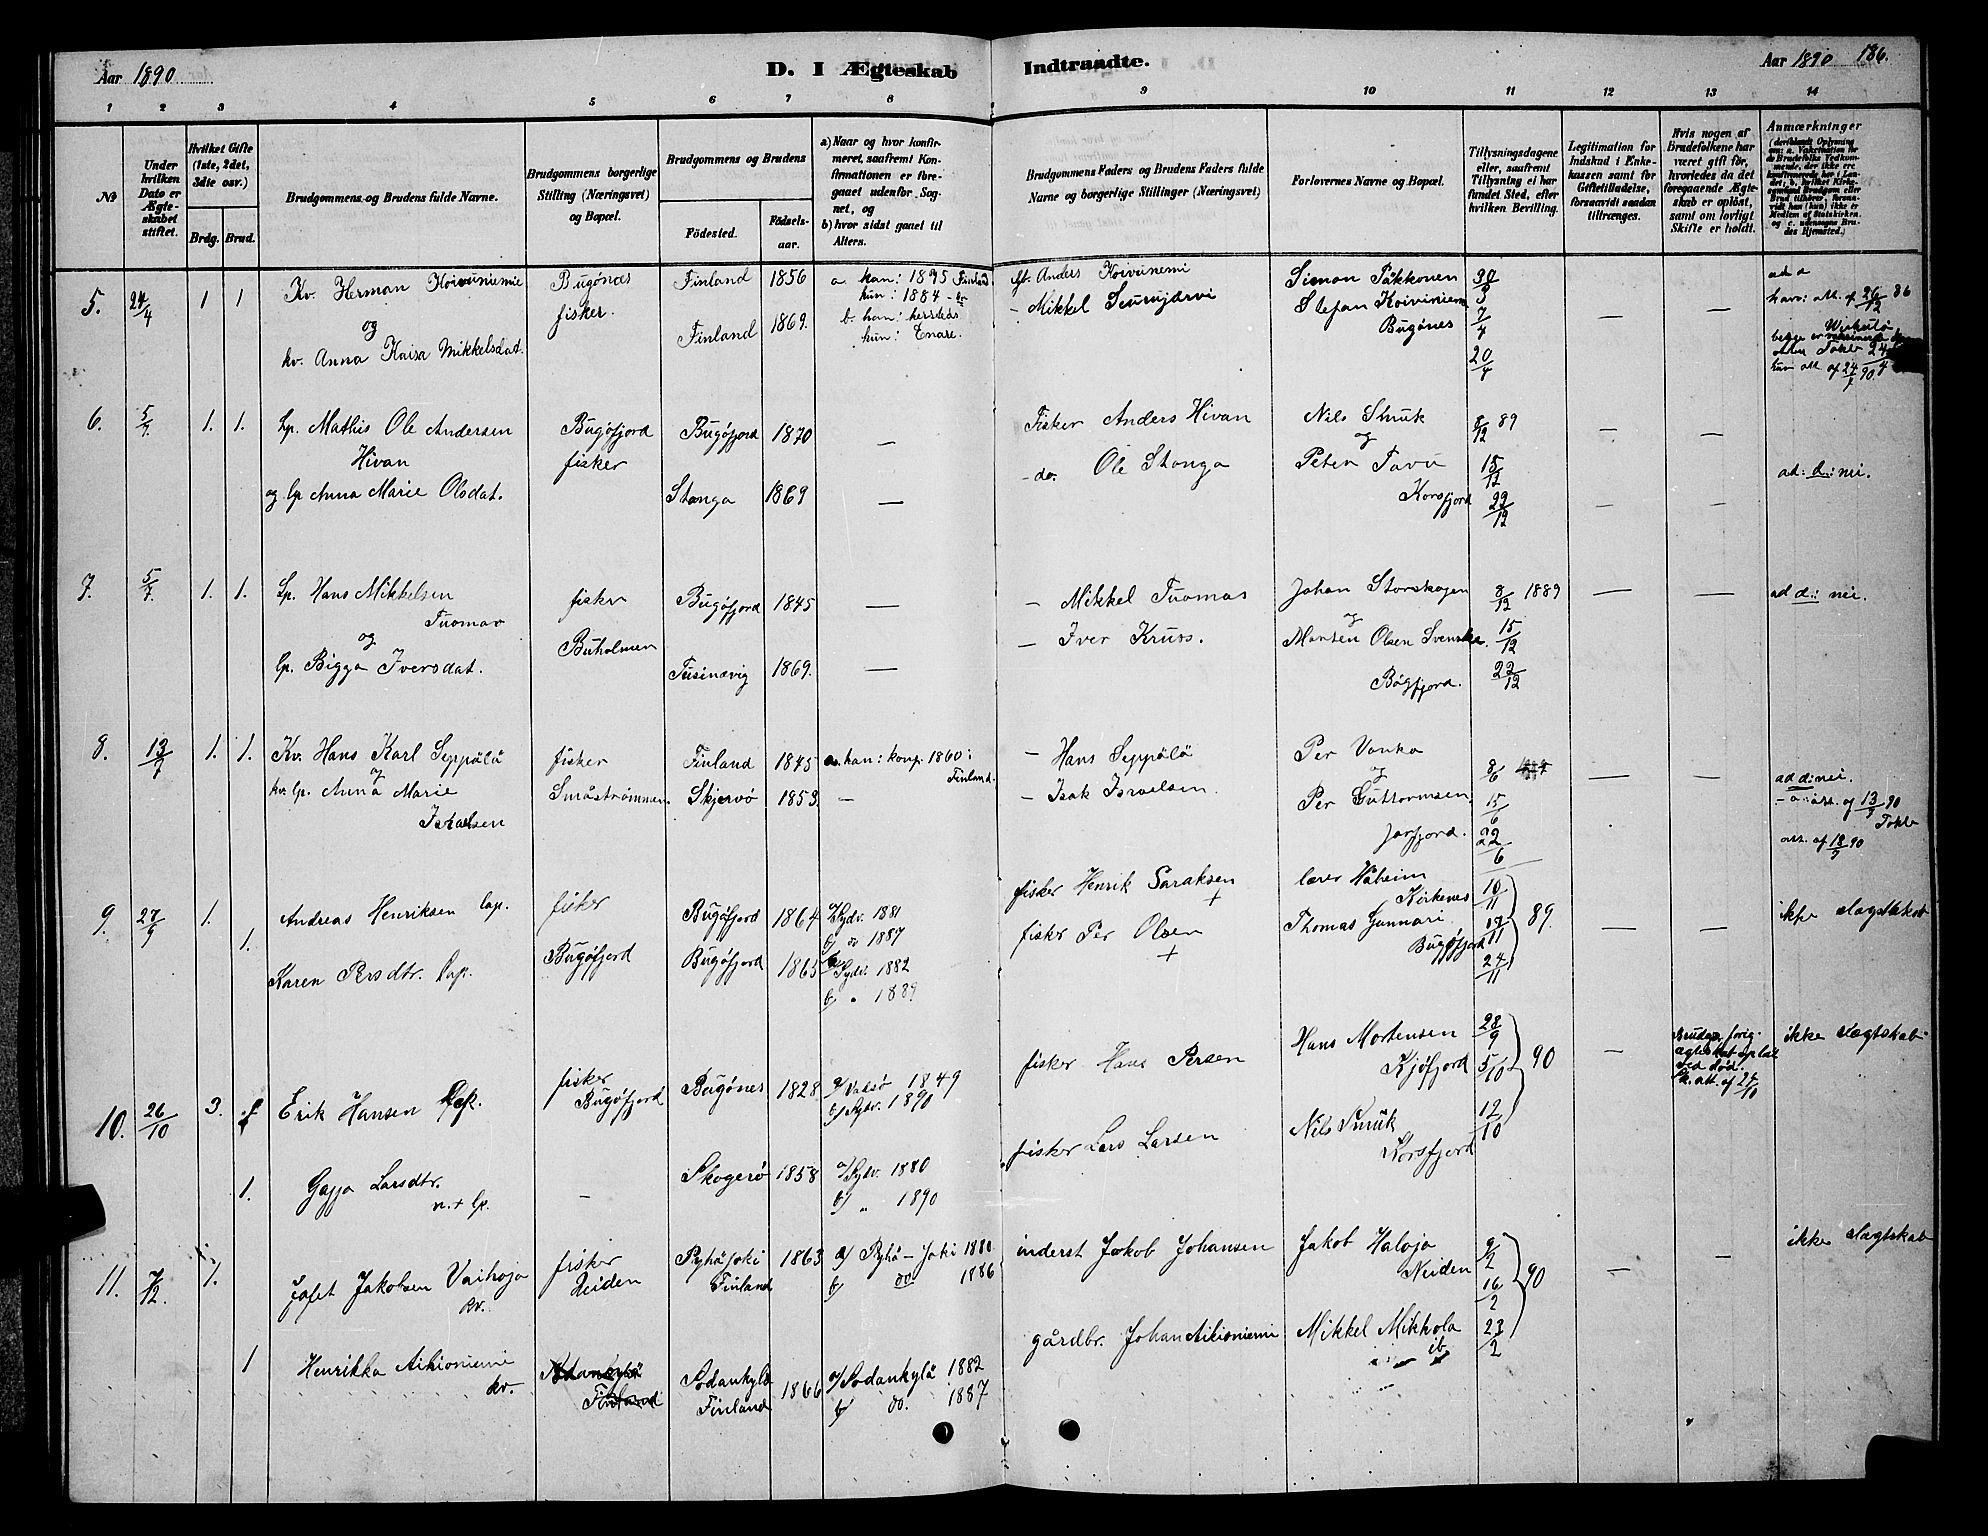 Aar 1890
D. I Ægteskab Indtraadte.
Aar 1890 186.
1 2 3 4 5 6 7 8 9 10 11 12 13 14
No
Under hvilken Dato er Ægteskabet stiftet.
Hvilket Gifte (1ste, 2det, 3die osv.)
Brdg. Brud.
Brudgommens og Brudens fulde Navne.
Brudgommens borgerlige Stilling (Næringsvei) og Bopæl.
Brudgommens og Brudens
Födested. Födselsaar.
a) Naar og hvor konfirmeret, saafremt Konfirmationen er foregaaet udenfor Sognet, og
b) hvor sidst gaaet til Alters.
Brudgommens Faders og Brudens Faders fulde Navne og borgerlige Stillinger (Næringsvei)
Forlovernes Navne og Bopæl.
Tillysningsdagene eller, saafremt Tillysning ei har fundet Sted, efter hvilken Bevilling.
Legitimation for Indskud i Enkekassen samt for Giftetilladelse, forsaavidt saadan tiltrænges.
Hvis nogen af Brudefolkene har været gift för, hvorledes da det foregaaende Ægteskab er oplöst, samt om lovligt Skifte er holdt.
Anmærkninger
5. 24/4 1 1
Kv. Herman Koivuniemie
og
kv. Anna Kaisa Mikkelsdat.
Bugönes
fisker.
Finland 1856
Finland 1869.
a han: 1895 Finland.
hun: 1884 - do
b. han: hersteds
hun: Enare.
Anders Koivunemi
- Mikkel Seurujærvi
Simon Påkkonen
Stefan Koiviniem
Bugönes
30/3
7/4
20/4
— —
ad a
han: att. af 26/12 86
6. 5/7. 1. 1.
Lp. Mathis Ole Andersen
Hivan
og lp Anna Marie Olsdat.
Bugöfjord
fisker
Bugöfjord 1870
Stanga 1869
—
—
Fisker Anders Hivan
- do. Ole Stanga
Nils Smuk
og
Peter Tavu
Korsfjord
8/12 89
15/12
22/12
— —
— —
ad: d.: nei.
7. 5/7. 1. 1.
Lp. Hans Mikkelsen
Tuomas
og
lp. Bigga Iversdat.
fisker
Buholmen
Bugöfjord 1845
Tusinavig 1869.
—
—
- Mikkel Tuomas
- Iver Kruss.
Johan Storskogen
og
Monsen Olsen Svenske.
Bögfjord.
8/12 1889
15/12
22/12
— —
ad d.: nei.
8. 13/7 1. 1.
Kv. Hans Karl Seppälä
og
kv. lp. Anna Marie
Israelsen
fisker
Småströmmen.
Finland 1845
Skjervö 1853.
a. han: konf. 1860:
Finland.
—
- Hans Seppälä
- Isak Israelsen.
Per Vanka
og
Per Guttormsen
Jarfjord.
8/6
15/6
22/6
— —
ad d: nei.
- a: att. af 13/7 90
att. af 18/7 90
9. 27/9 1.
1.
Andreas Henriksen lap.
Karen Persdtr. lap.
fisker
Bugöfjord
Bugöfjord 1864
Bugöfjord 1865
a/ Sydv. 1881
b/ do 1887
a/ Sydv. 1882
b/ " 1889
fisker Henrik Saraksen
+
fisker Per Olsen
+
lærer Haheim
Kirkenes
Thomas Gunnari
Bugöfjord
10/11
17/11
24/11
89.
— —
ikke slægtskab
10. 26/10 3.
1.
Erik Hansen Lap.
Gagga Larsdtr.
n. + lp.
fisker
Bugöfjord
—
Bugönes 1828
Skogerö 1858
a/ Vadsö 1849
b/ Sydv. 1890
a/ Sydv. 1880
b/ " 1890
fisker Hans Persen
fisker Lars Larsen
Hans Mortensen
Kjöfjord
Nils Smuk
Korsfjord
28/9
5/10
12/10
90
—
Brudg. forrig
ægteskab oplöst
ved död.
Sk. att. af 24/10
ikke slægtskab
11. 7/12. 1.
1
Jafet Jakobsen Vaihoja
kv.
Henrikka Aikioniemi
kv.
fisker
Neiden
Pyhäjoki
Finland 1863
Sodankylä
Finland 1866
a/ Pyhä-Joki 1880
b/ do 1886
a/ Sodankylä 1882
b/ do. 1887
inderst Jakob Johansen
gårdbr. Johan Aikioniemi
Jakob Haloja
Neiden
Mikkel Mikkola
ib.
9/2
16/2
23/2
90
— —
ikke slægtskab